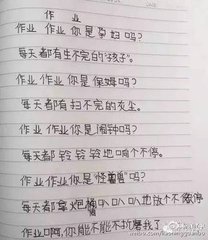 作 业
作业 作业 你是孕妇吗?
每天都有生不完的"孩子"。
作业 作业 你是保姆吗?
每天都有扫不完的灰尘。
作业 作业 你是闹钟吗?
每天都 铃 铃 铃 地响个不停。
作业 作业 你是"怪兽"吗?
每天都拿炮 DA DA DA 地放个不
作业啊,你能不能不折磨我了